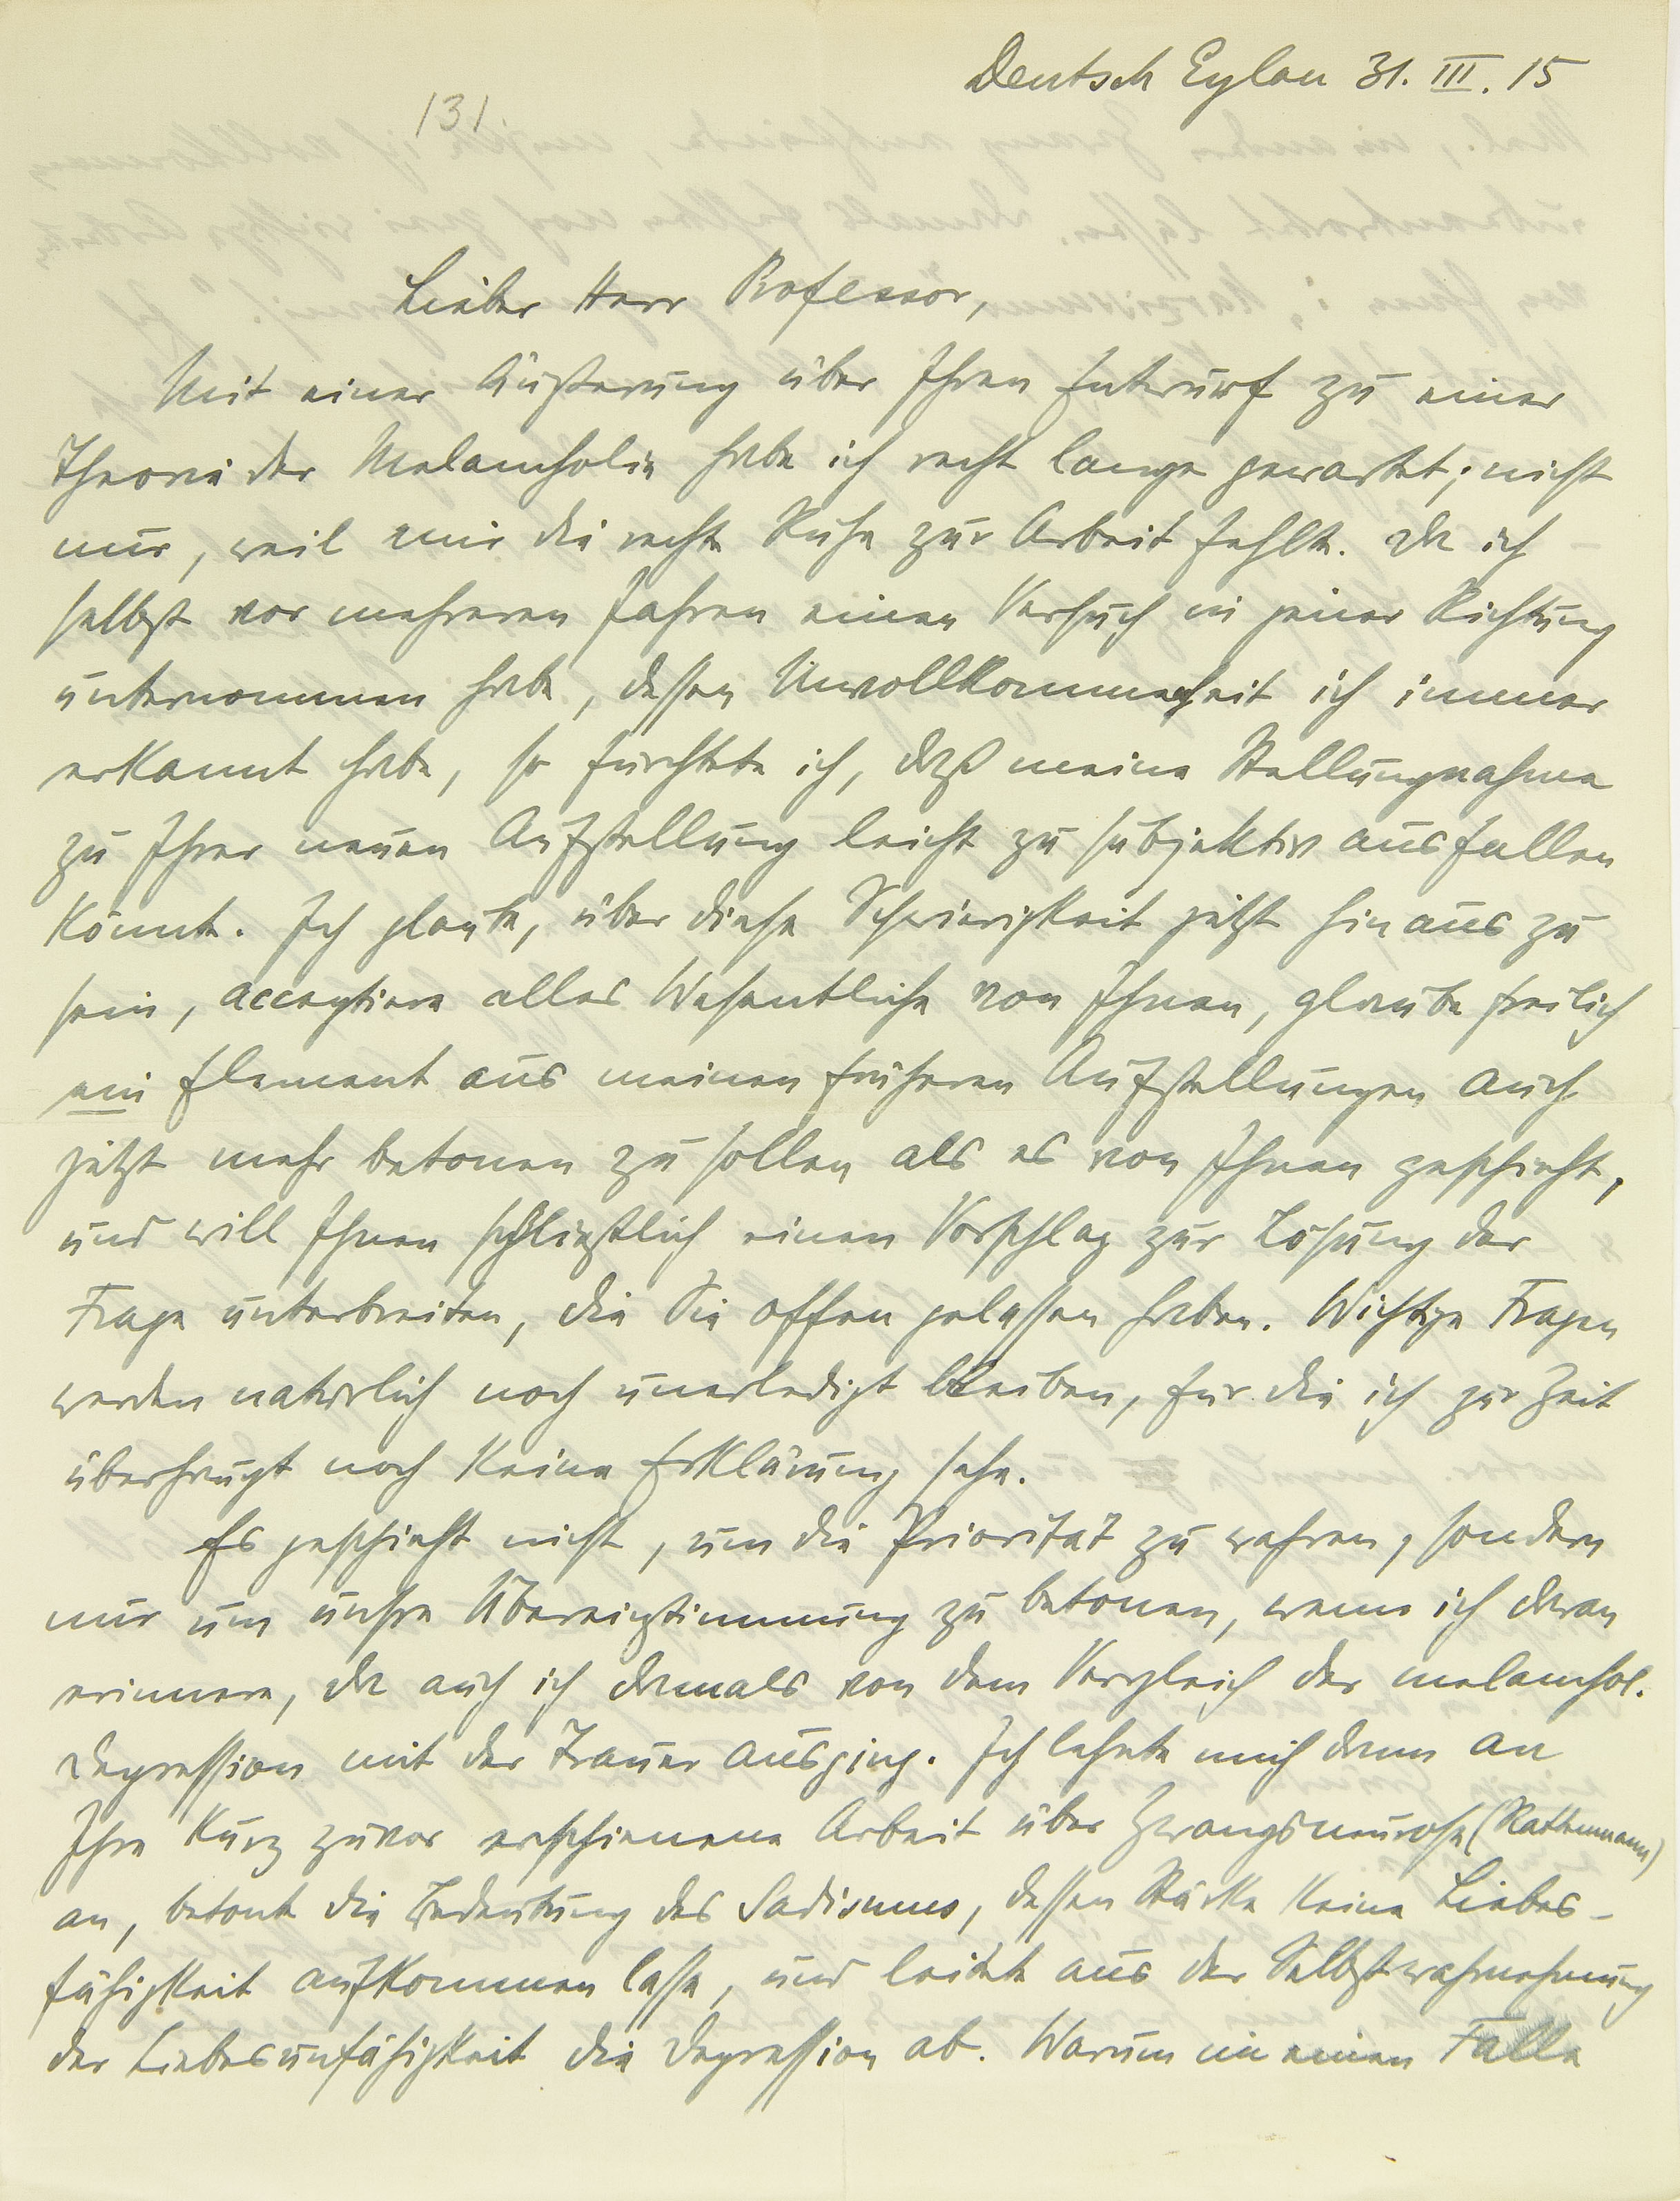 Deutsch Eylau 31. III. 15
131.
Lieber Herr Professor,
Mit einer Äußerung über Ihren Entwurf zu einer
Theorie der Melancholie habe ich recht lange gewartet; nicht
nur, weil mir die rechte Ruhe zur Arbeit fehlte. Da ich
selbst vor mehreren Jahren einen Versuch in jener Richtung
unternommen habe, dessen Unvollkommenheit ich immer
erkannt habe, so fürchtete ich, daß meine Stellungnahme
zu Ihrer neuen Aufstellung leicht zu subjektiv ausfallen
könnte. Ich glaube, über diese Schwierigkeit jetzt hinaus zu
sein, acceptiere alles Wesentliche von Ihnen, glaube freilich
ein Element aus meinen früheren Aufstellungen auch
jetzt mehr betonen zu sollen als es von Ihnen geschieht,
und will Ihnen schließlich einen Vorschlag zur Lösung der
Frage unterbreiten, die Sie offen gelassen haben. Wichtige Fragen
werden natürlich noch unerledigt bleiben, für die ich zur Zeit
überhaupt noch keine Erklärung sehe.
Es geschieht nicht, um die Priorität zu wahren, sondern
nur um unsre Übereinstimmung zu betonen, wenn ich daran
erinnere, da auch ich damals von dem Vergleich der melanchol.
Depression mit der Trauer ausging. Ich lehnte mich dann an
Ihre kurz zuvor erschienene Arbeit über Zwangsneurose (Rattenmann)
an, betonte die Bedeutung des Sadismus, dessen Stärke keine Liebes-
fähigkeit aufkommen lasse, und leitete aus der Selbstwahrnehmung
der Liebesunfähigkeit die Depression ab. Warum im einen Falle